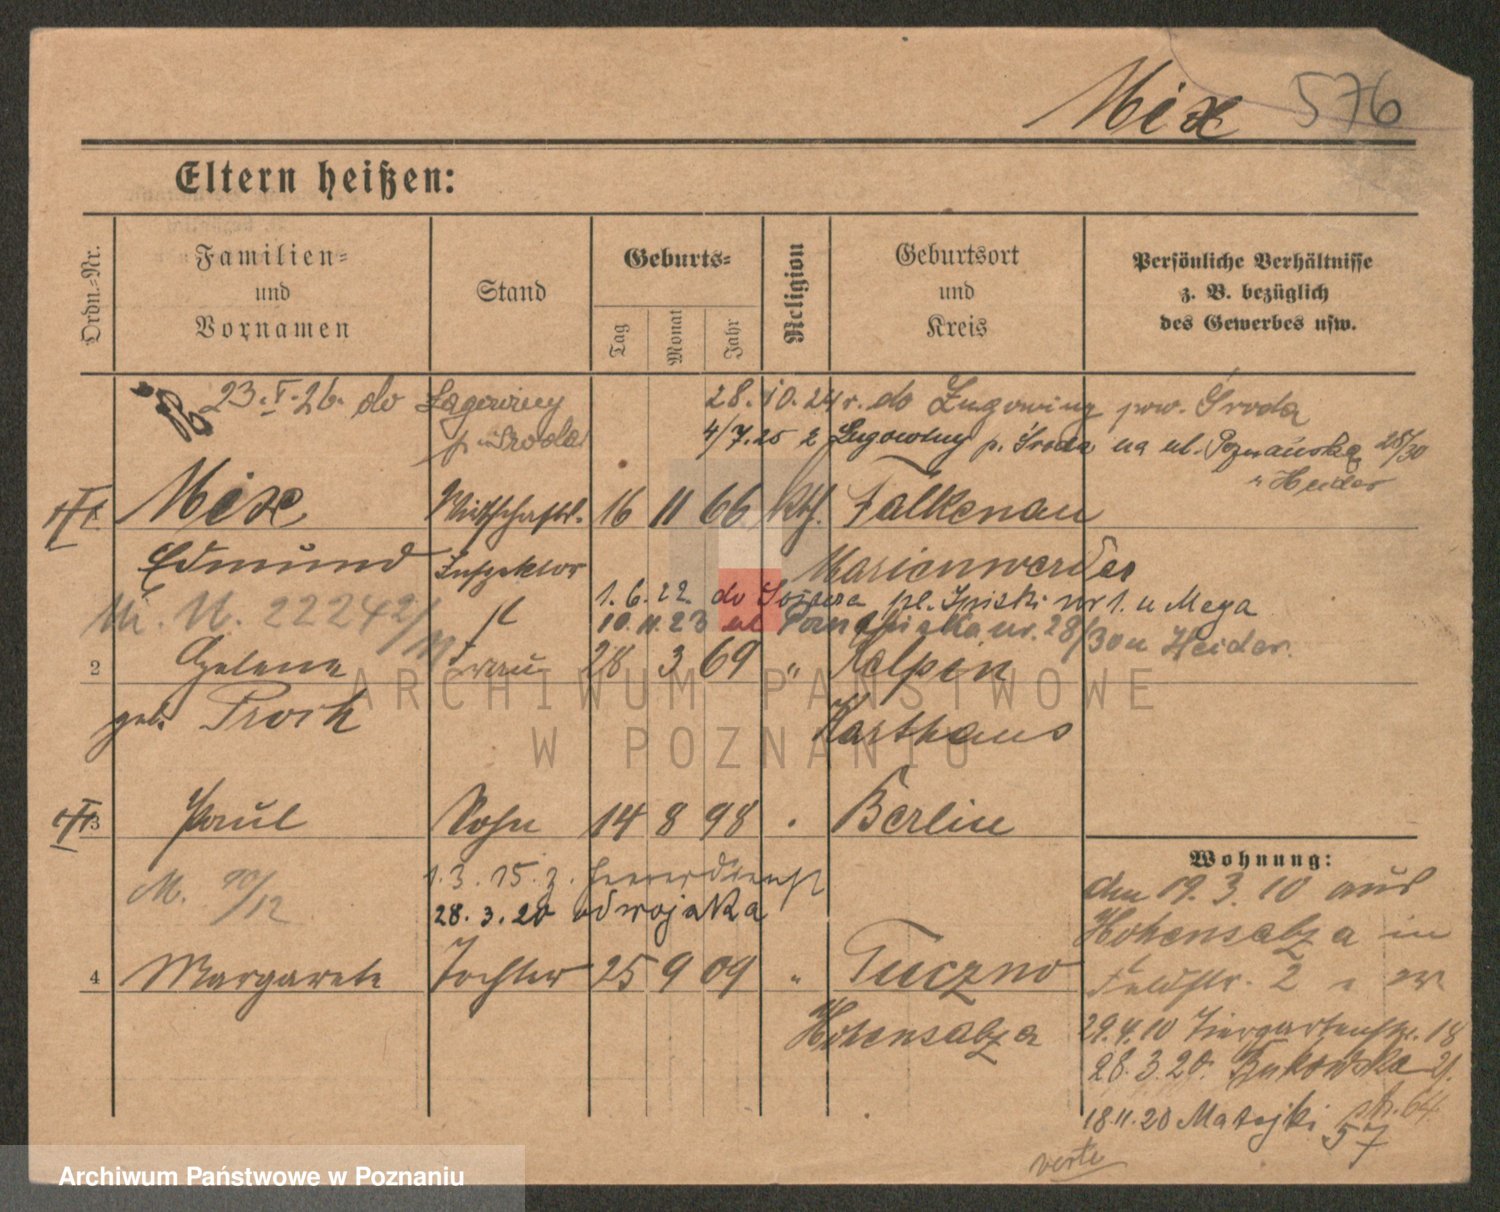 Mix 576
Eltern heißen:
Ordn.-Nr.
Familien-
und
Vornamen
Stand
Geburts-
Tag
Monat
Jahr
Religion
Geburtsort
und
Kreis
Persönliche Verhältnisse
z. B. bezüglich
des Gewerbes usw.
23.V.26. do Łagowiny
p. Środa
28.10.24 r. doŁugowiny pow. Środa
4/7.25 z Ługowiny p. Środa na ul. Poznańska 28/30
u Heider
1 Mix Wirtschafts. 16 11 66 kth. Falkenau
Edmund Inspektor Marienwerder
1.6.22 do
nr 1. u Maya
M. N. 22242/
10.11.23 ul Poznańska nr. 28/30 u Heider.
2 Helene Frau 28 3 69 " Kelpin
geb. Prock Karthaus
3 Paul Sohn 14 8 98 . Berlin
M. 90/12
1.3.15. z. Heeresdienst
28.3.20 od wojska
4 Margarete Tochter 25 9 09 " Tuczno
Hohensalza
Wohnung:
den 19.3.10 aus
Hohensalza in
Feldstr. 2
29.4.10 Tiergartenstr. 18
28.3.20. Bukowska 21.
18.11.20 Matejki 57
str. 64
verte
ARCHIWUM PAŃSTWOWE
W POZNANIU
Archiwum Państwowe w Poznaniu